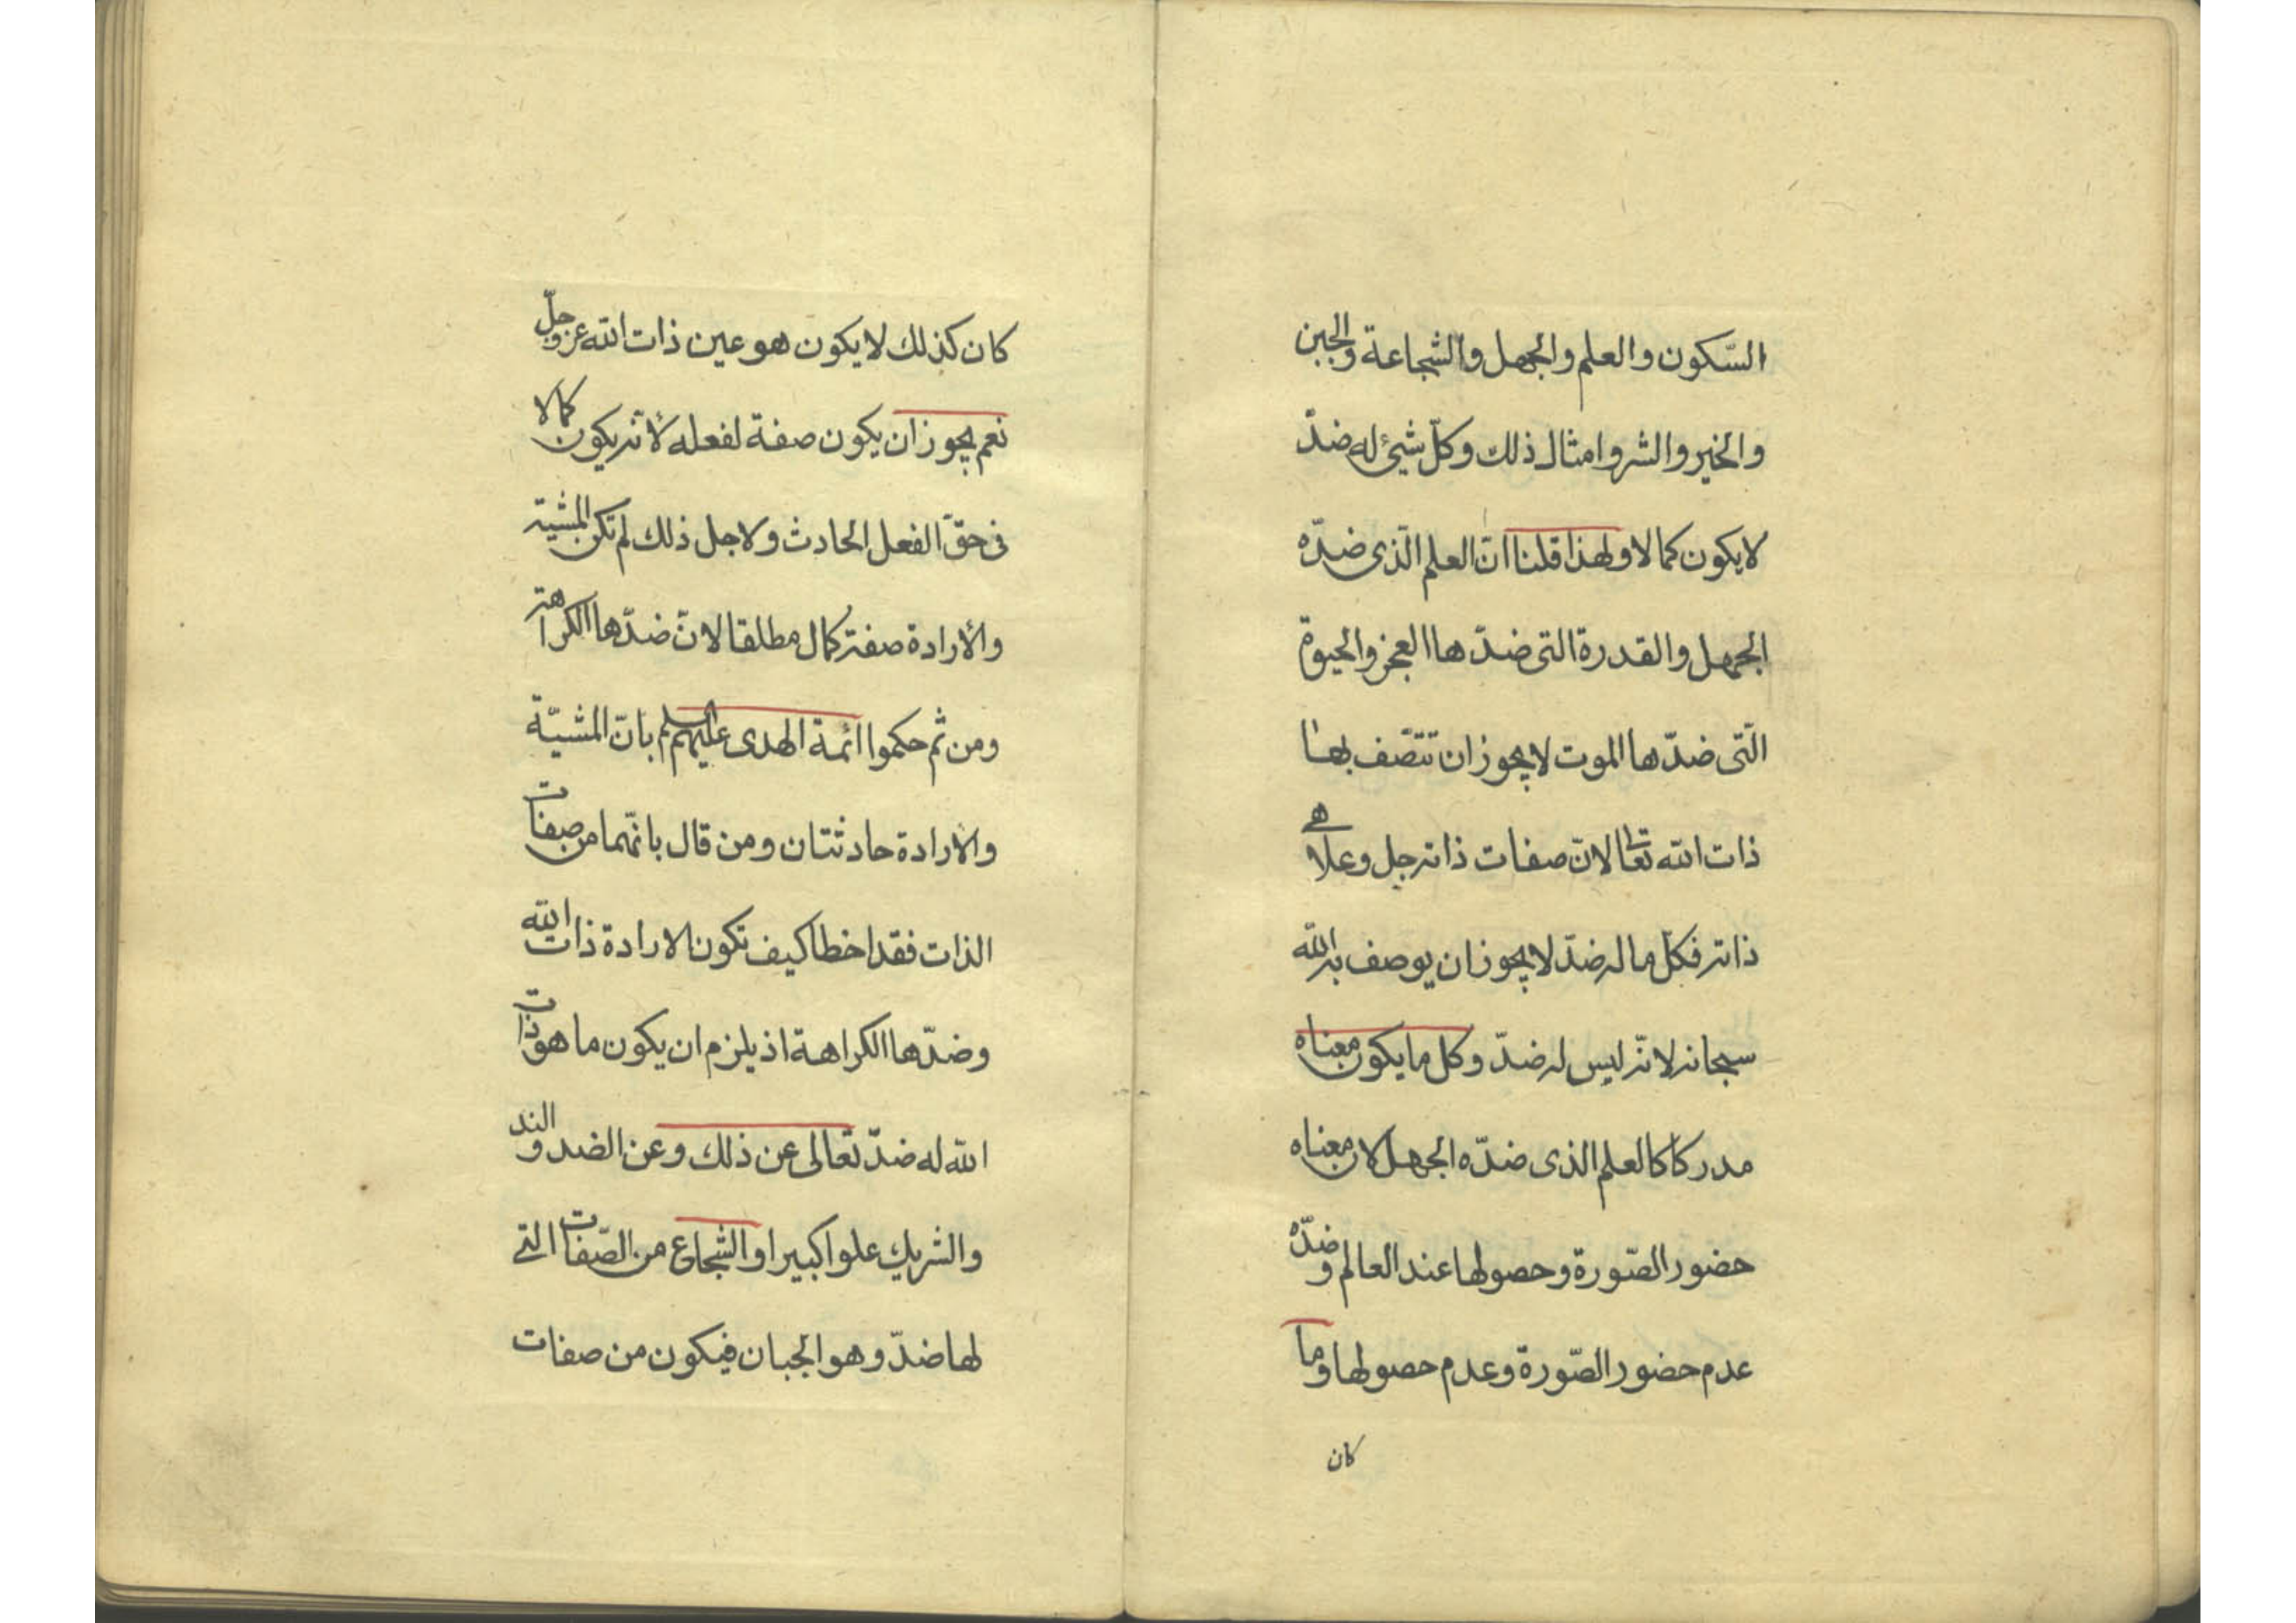 السّكون والعلم والجهل والشجاعة والجبن
والخير والشر وامثال ذلك وكلّ شيئ له ضدّ
لا يكون كمالا ولهذا قلنا انّ العلم الّذى ضدّه
الجهل والقدرة التى ضدّها العجز والحيوة
الّتى ضدّها الموت لا يجوز ان تتصّف بها
ذات الله تعالى لانّ صفات ذاته جل وعلا هى
ذاته فكلّ ما له ضدّ لا يجوز ان يوصف به الله
سبحانه لانّه ليس له ضدّ وكل ما يكون معناه
مدركا كالعلم الذى ضدّه الجهل لان معناه
حضور الصّورة وحصولها عند العالم وضدّه
عدم حضور الصّورة وعدم حصولها وما
كان
كان كذلك لا يكون هو عين ذات الله عز وجلّ
نعم يجوز ان يكون صفة لفعله لأنّه يكون كمالا
فى حقّ الفعل الحادث ولاجل ذلك لم تكن المشية
والأرادة صفة كمال مطلقا لانّ ضدّها الكراهة
ومن ثم حكموا ائمة الهدى عليهم السلم بانّ المشيّة
والارادة حادثتان ومن قال بانّهما من صفات
الذات فقد اخطا كيف تكون الارادة ذات الله
وضدّها الكراهة اذ يلزم ان يكون ما هو ذات
الله له ضدّ تعالى عن ذلك وعن الضد والند
والشريك علوا كبيرا والشجاع من الصّفات التى
لها ضدّ وهو الجبان فيكون من صفات